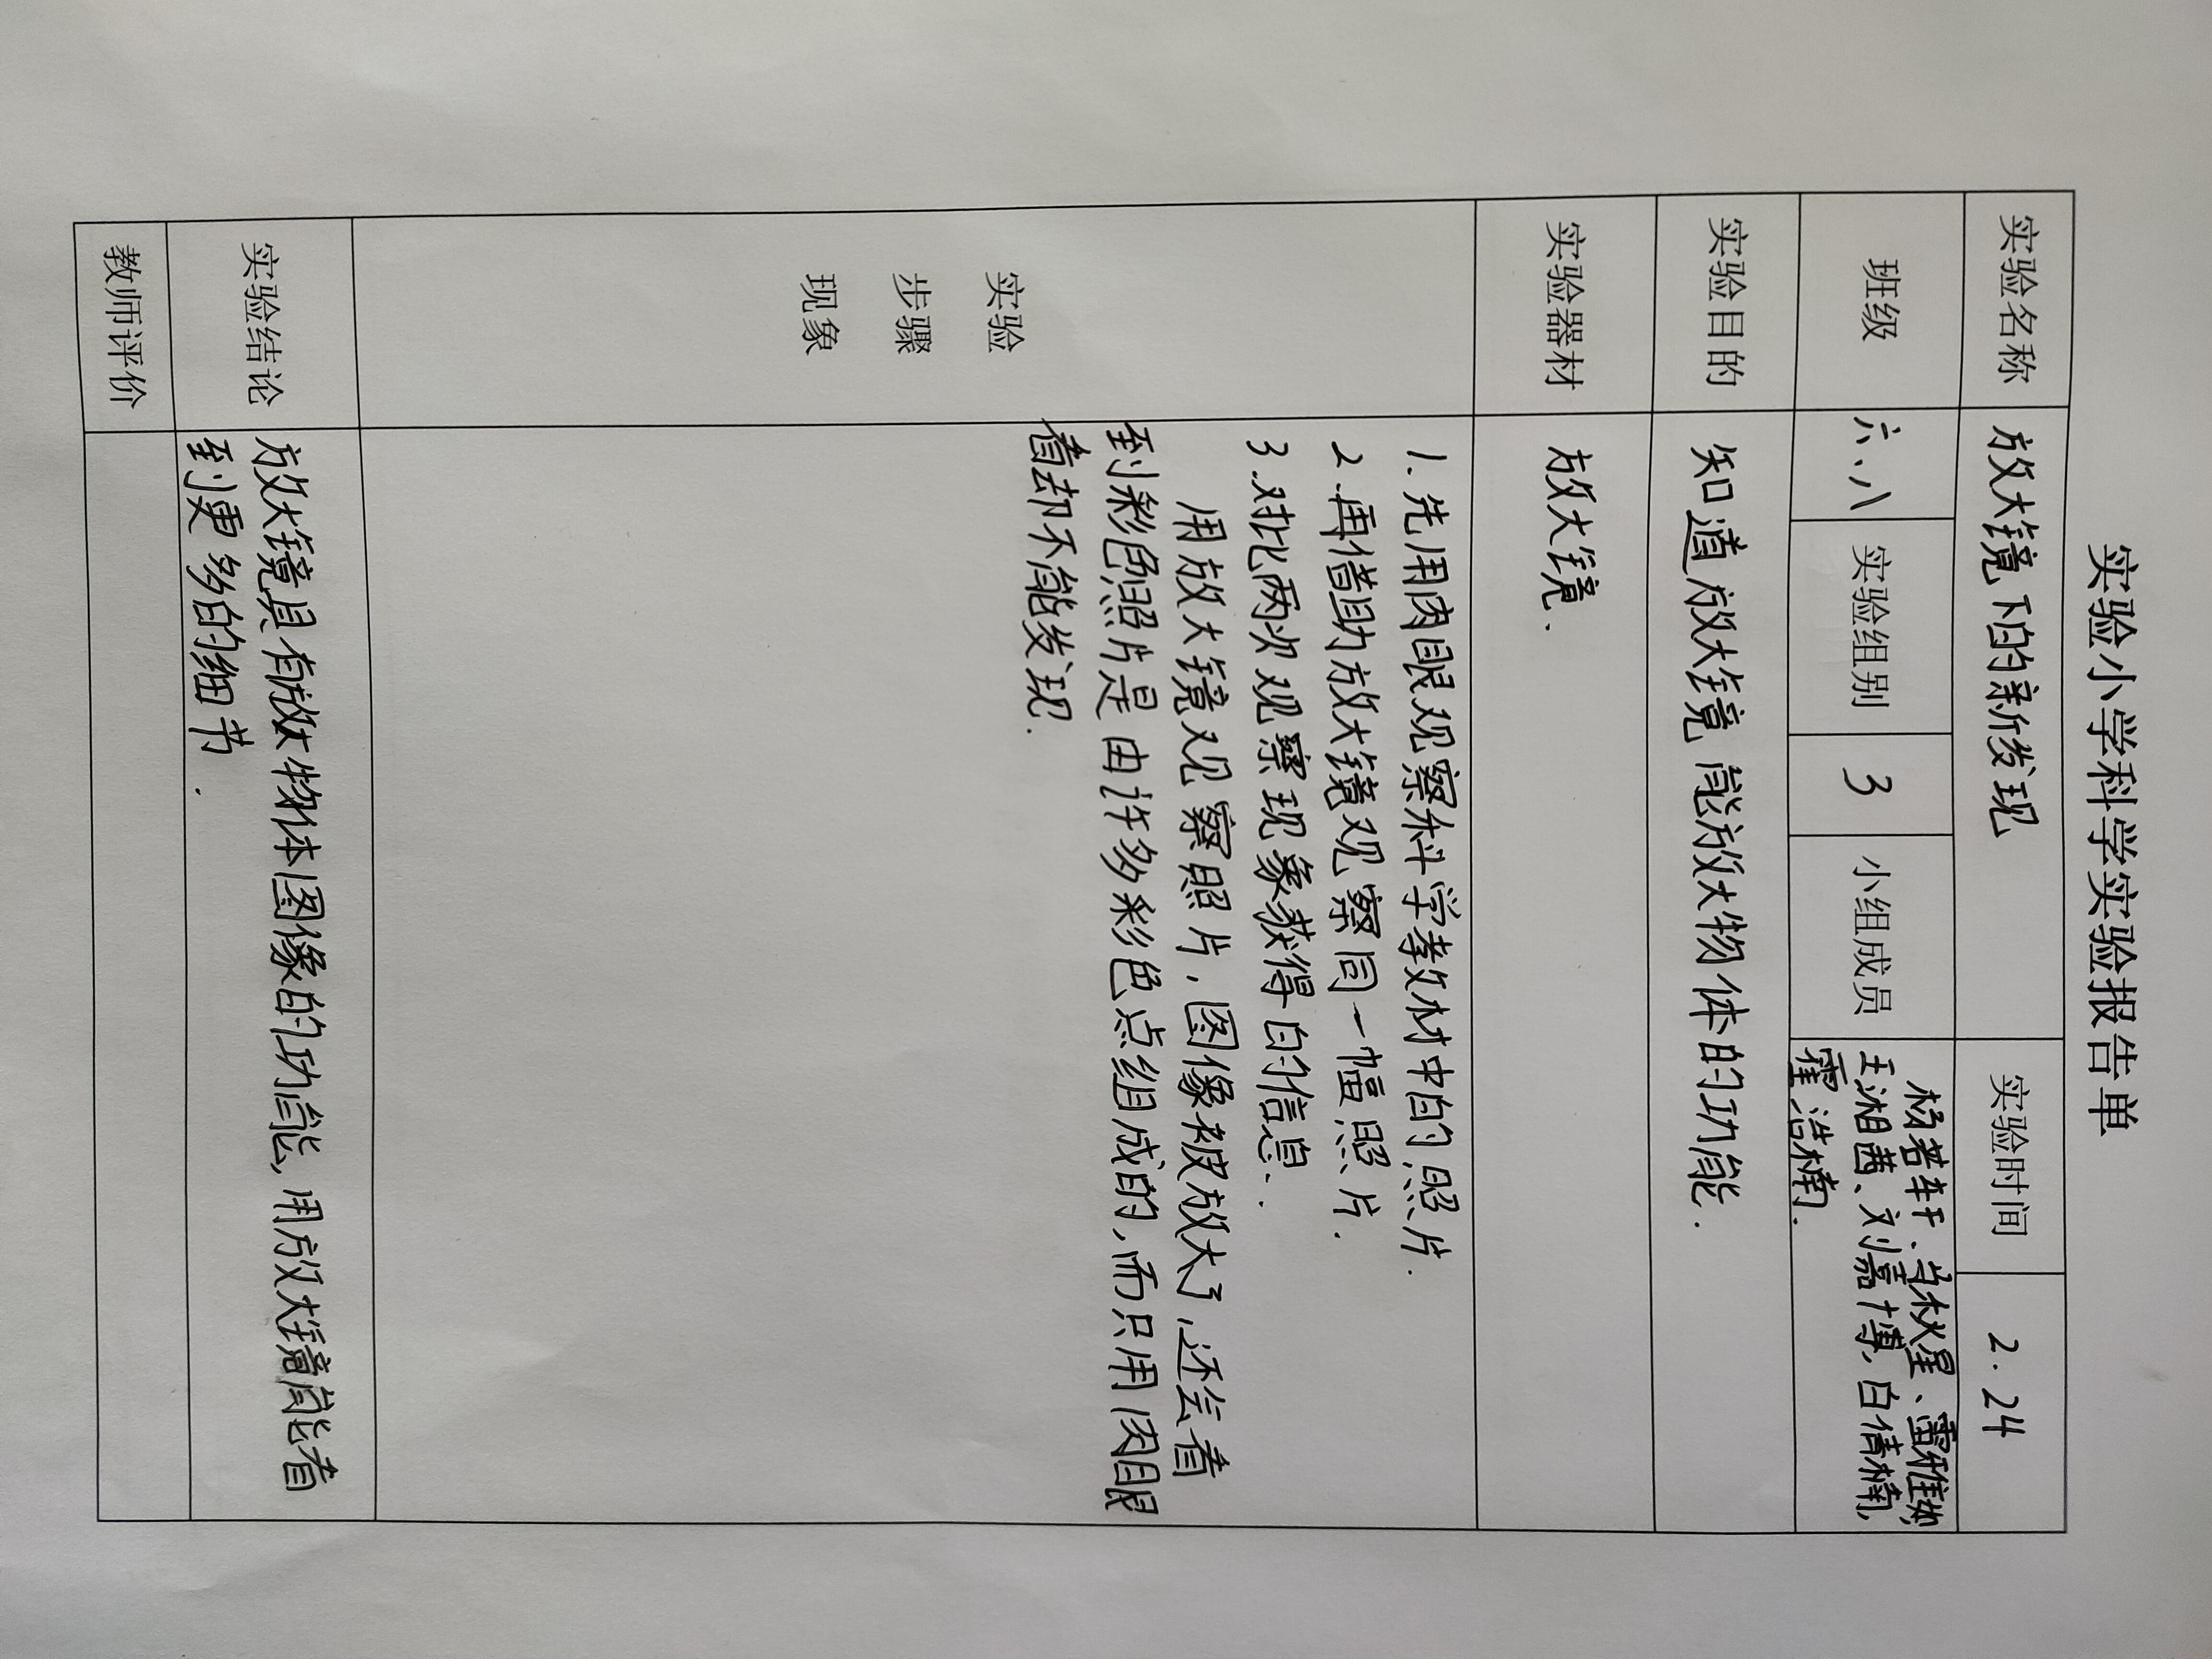 实验小学科学实验报告单
实验名称 放大镜下的新发现 实验时间 2.24
班级 六、八 实验组别 3 小组成员 杨若轩、单秋星、雷雅如,
王湘茜、刘嘉博,白倩楠,
霍浩楠.
实验目的 知道放大镜能放大物体的功能.
实验器材 放大镜.
实验
步骤
现象
1.先用肉眼观察科学教材中的照片.
2.再借助放大镜观察同一幅照片.
3.对比两次观察现象获得的信息.
用放大镜观察照片,图像被放大了,还会看
到彩色照片是由许多彩色点组成的,而只用肉眼
看去却不能发现.
实验结论 放大镜具有放大物体图像的功能,用放大镜能看
到更多的细节.
教师评价